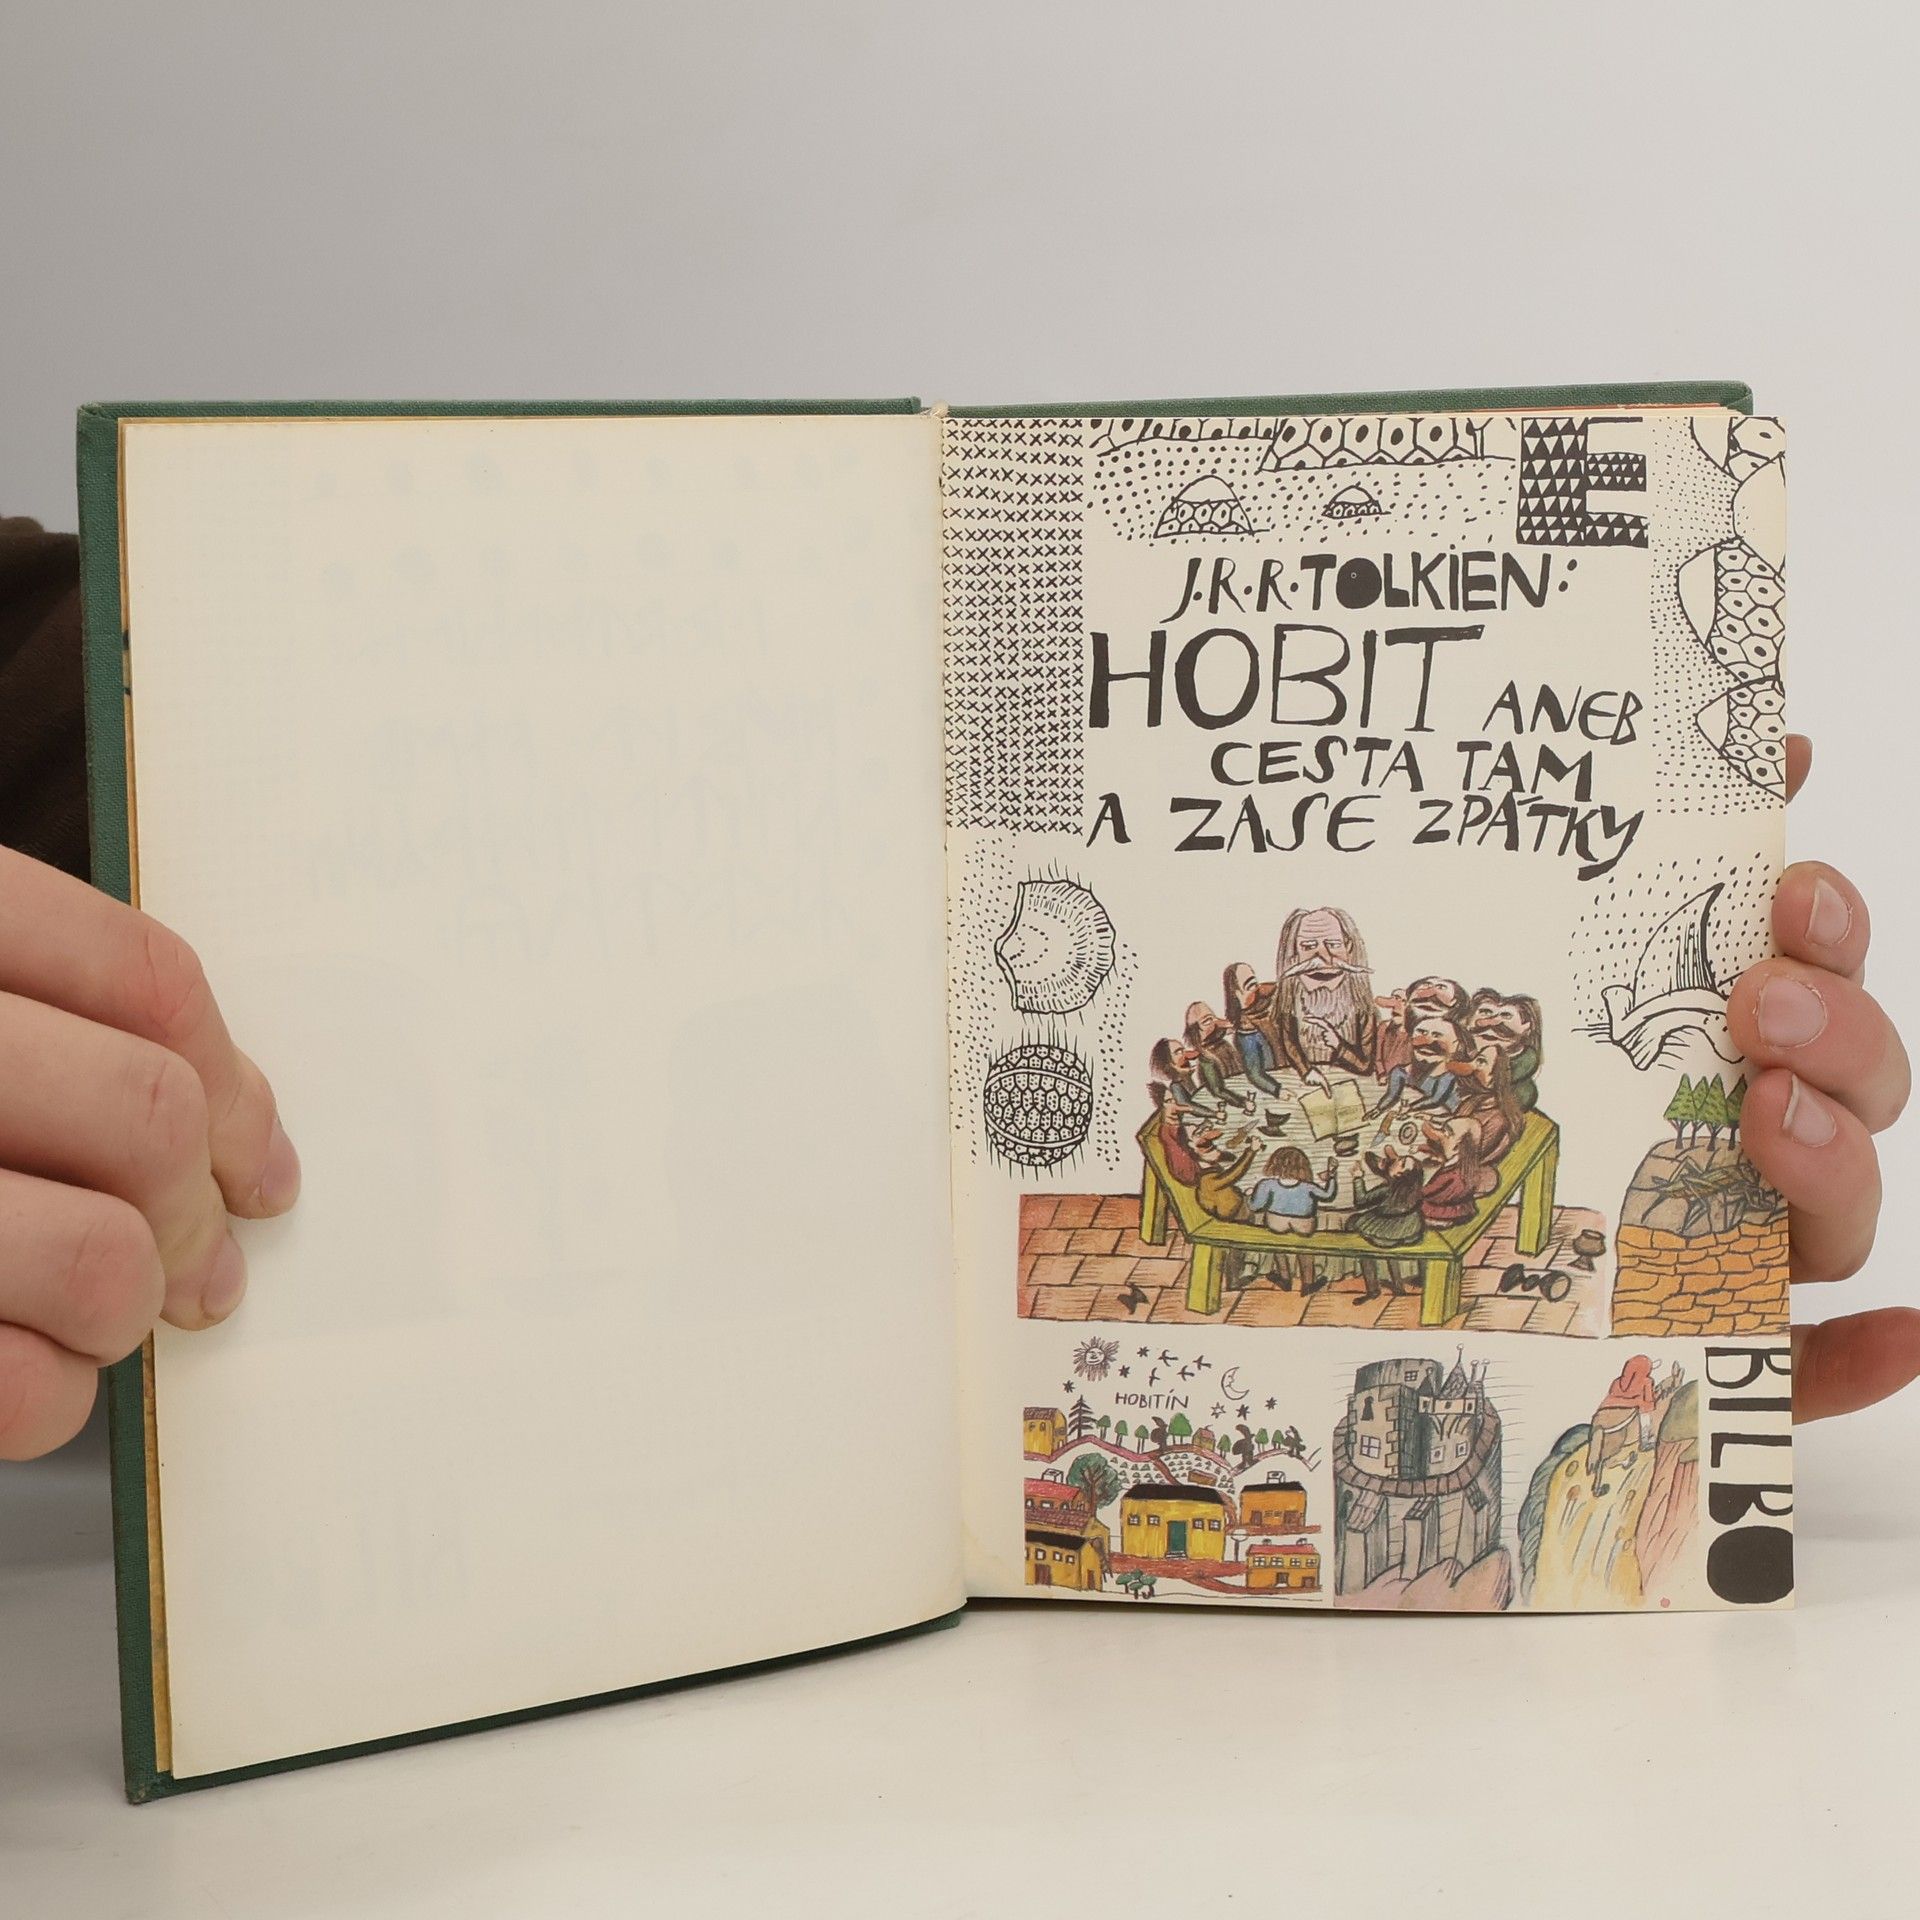 E
J.R.R.TOLKIEN:
HOBIT ANEB
CESTA TAM
A ZASE ZPÁTKY
HOBITÍN
BILBO